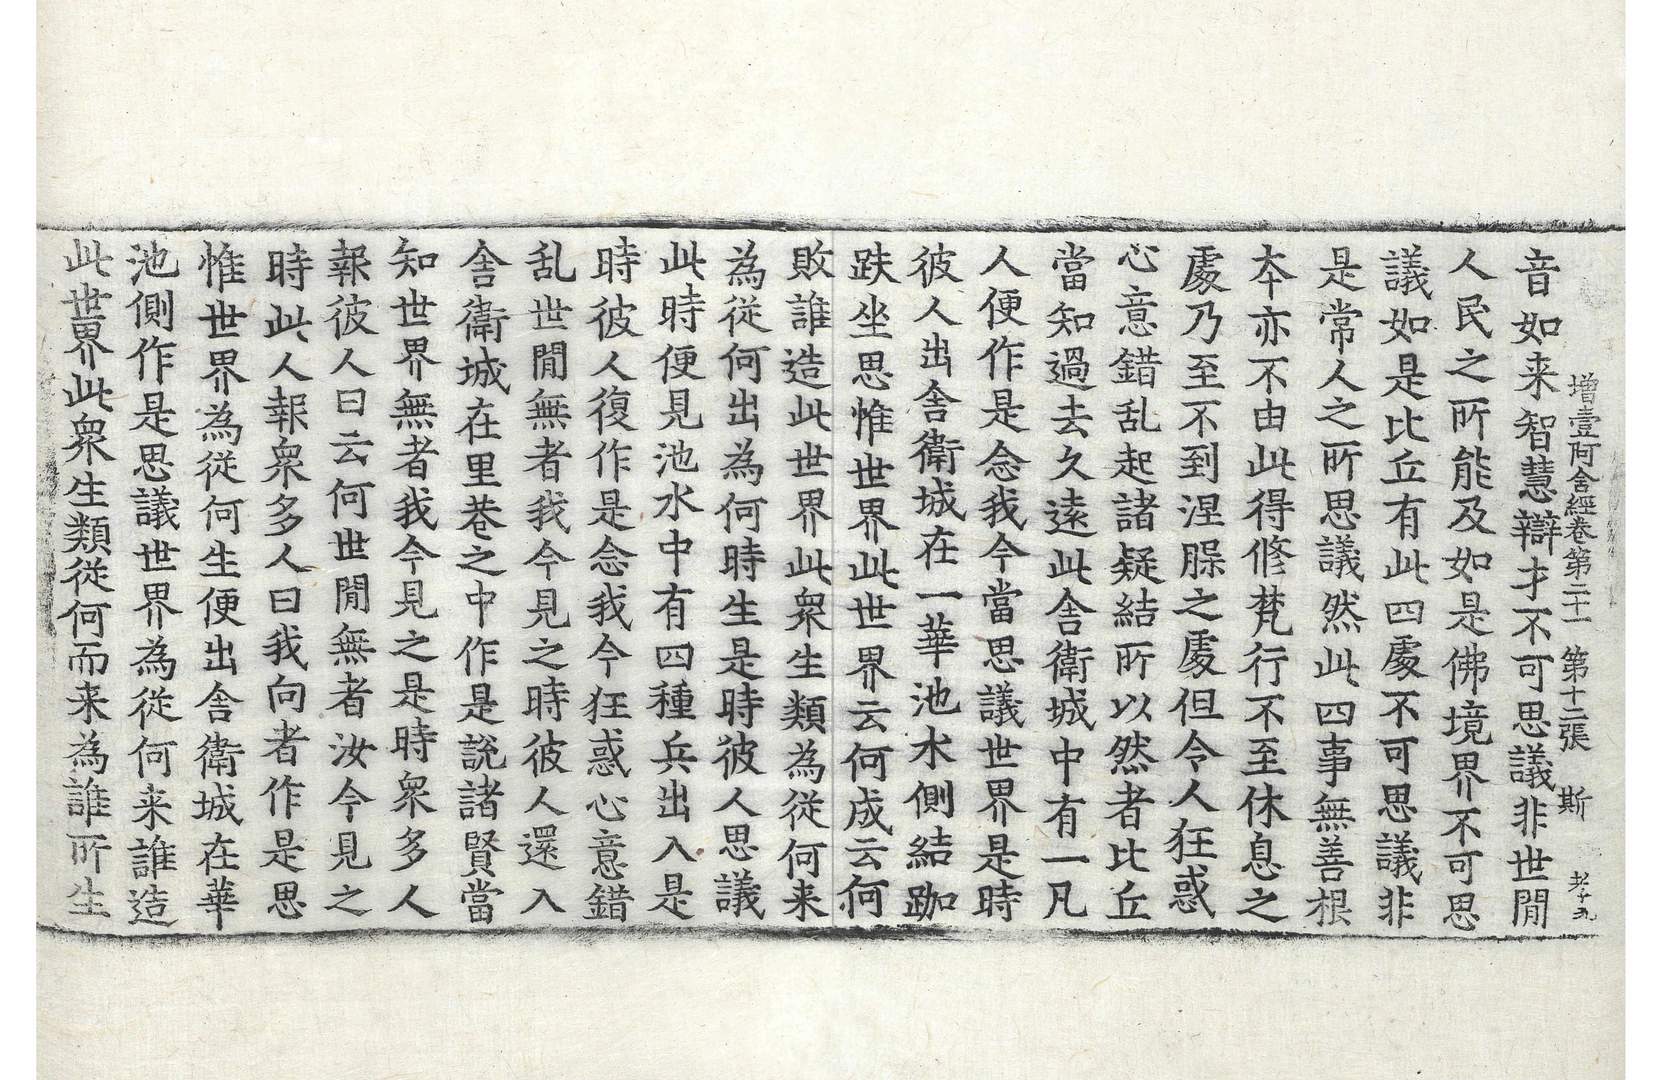 增壹阿含經卷第二十一 第十二張 斯
音如来智慧辯才不可思議非世間
人民之所能及如是佛境界不可思
議如是比丘有此四處不可思議非
是常人之所思議然此四事無善根
本亦不由此得修梵行不至休息之
處乃至不到涅槃之處但令人狂惑
心意錯乱起諸疑結所以然者比丘
當知過去久遠此舍衛城中有一凡
人便作是念我今當思議世界是時
彼人出舍衛城在一華池水側結跏
趺坐思惟世界此世界云何成云何
敗誰造此世界此衆生類為從何来
為從何出為何時生是時彼人思議
此時便見池水中有四種兵出入是
時彼人復作是念我今狂惑心意錯
乱世間無者我今見之時彼人還入
舍衛城在里巷之中作是說諸賢當
知世界無者我今見之是時衆多人
報彼人曰云何世間無者汝今見之
時此人報衆多人曰我向者作是思
惟世界為從何生便出舍衛城在華
池側作是思議世界為從何来誰造
此世界此衆生類從何而来為誰所生